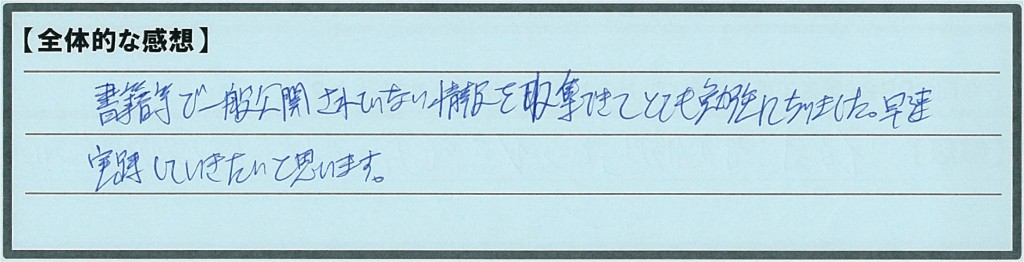 【全体的な感想】
書籍等で一般公開されていない情報を収集できてとても勉強になりました。早速
実践していきたいと思います。